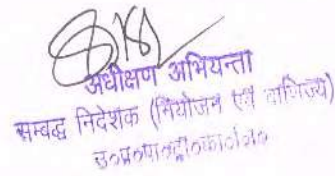 अधीक्षण अभियन्ता
सम्बद्ध निदेशक (नियोजन एवं वाणिज्य)
उ०प्र०पा०ट्रां०का०लि०